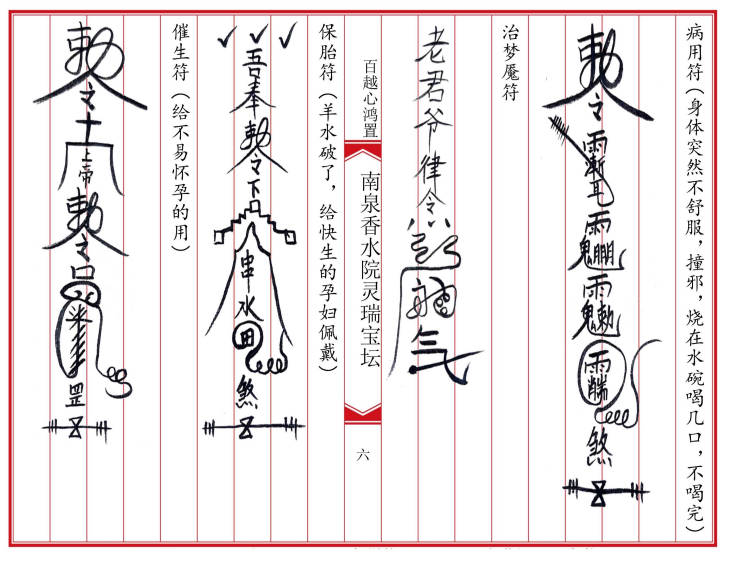 病用符（身体突然不舒服，撞邪，烧在水碗喝几口，不喝完）
敕令
煞
治梦魇符
老君爷律令
气
百越心鸿置
南泉香水院灵瑞宝坛
六
保胎符（羊水破了，给快生的孕妇佩戴）
吾奉敕令下
水
田
煞
催生符（给不易怀孕的用）
敕令
上帝
敕令
罡